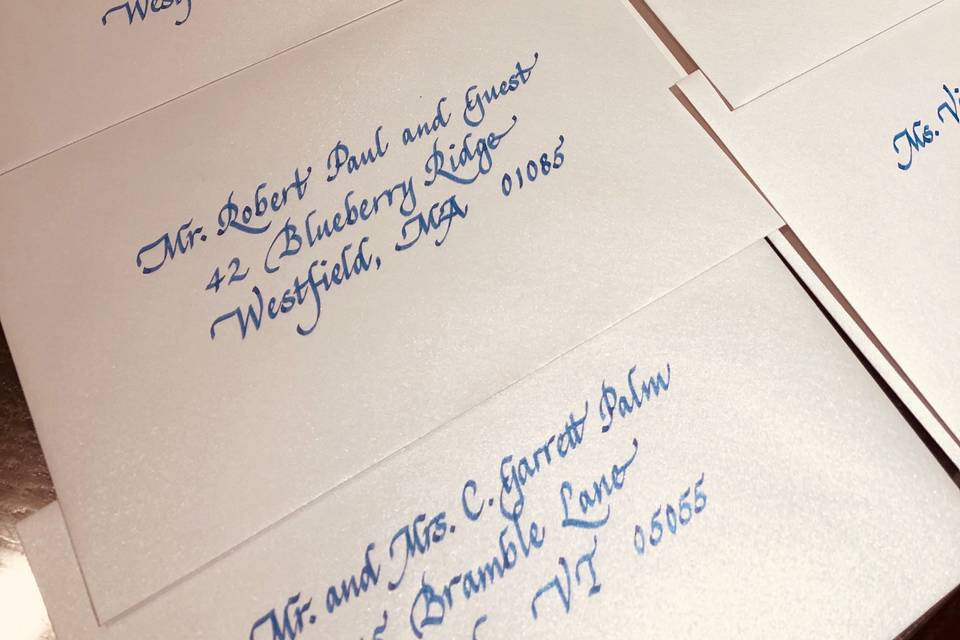 Mr. Robert Paul and Guest
42 Blueberry Ridge
Westfield, MA 01085
Mr. and Mrs. C. Garrett Palm
Bramble Lane
VT 05055
Ms.